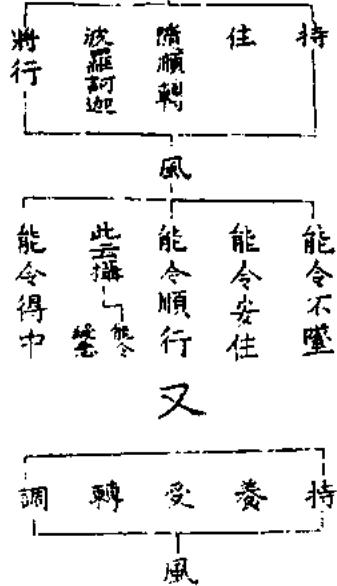 持
住
隨順轉
波羅訶迦
將行
風
能令不墜
能令安住
能令順行
此云攝
能令
緩急
能令得中
又
持
養
受
轉
調
風